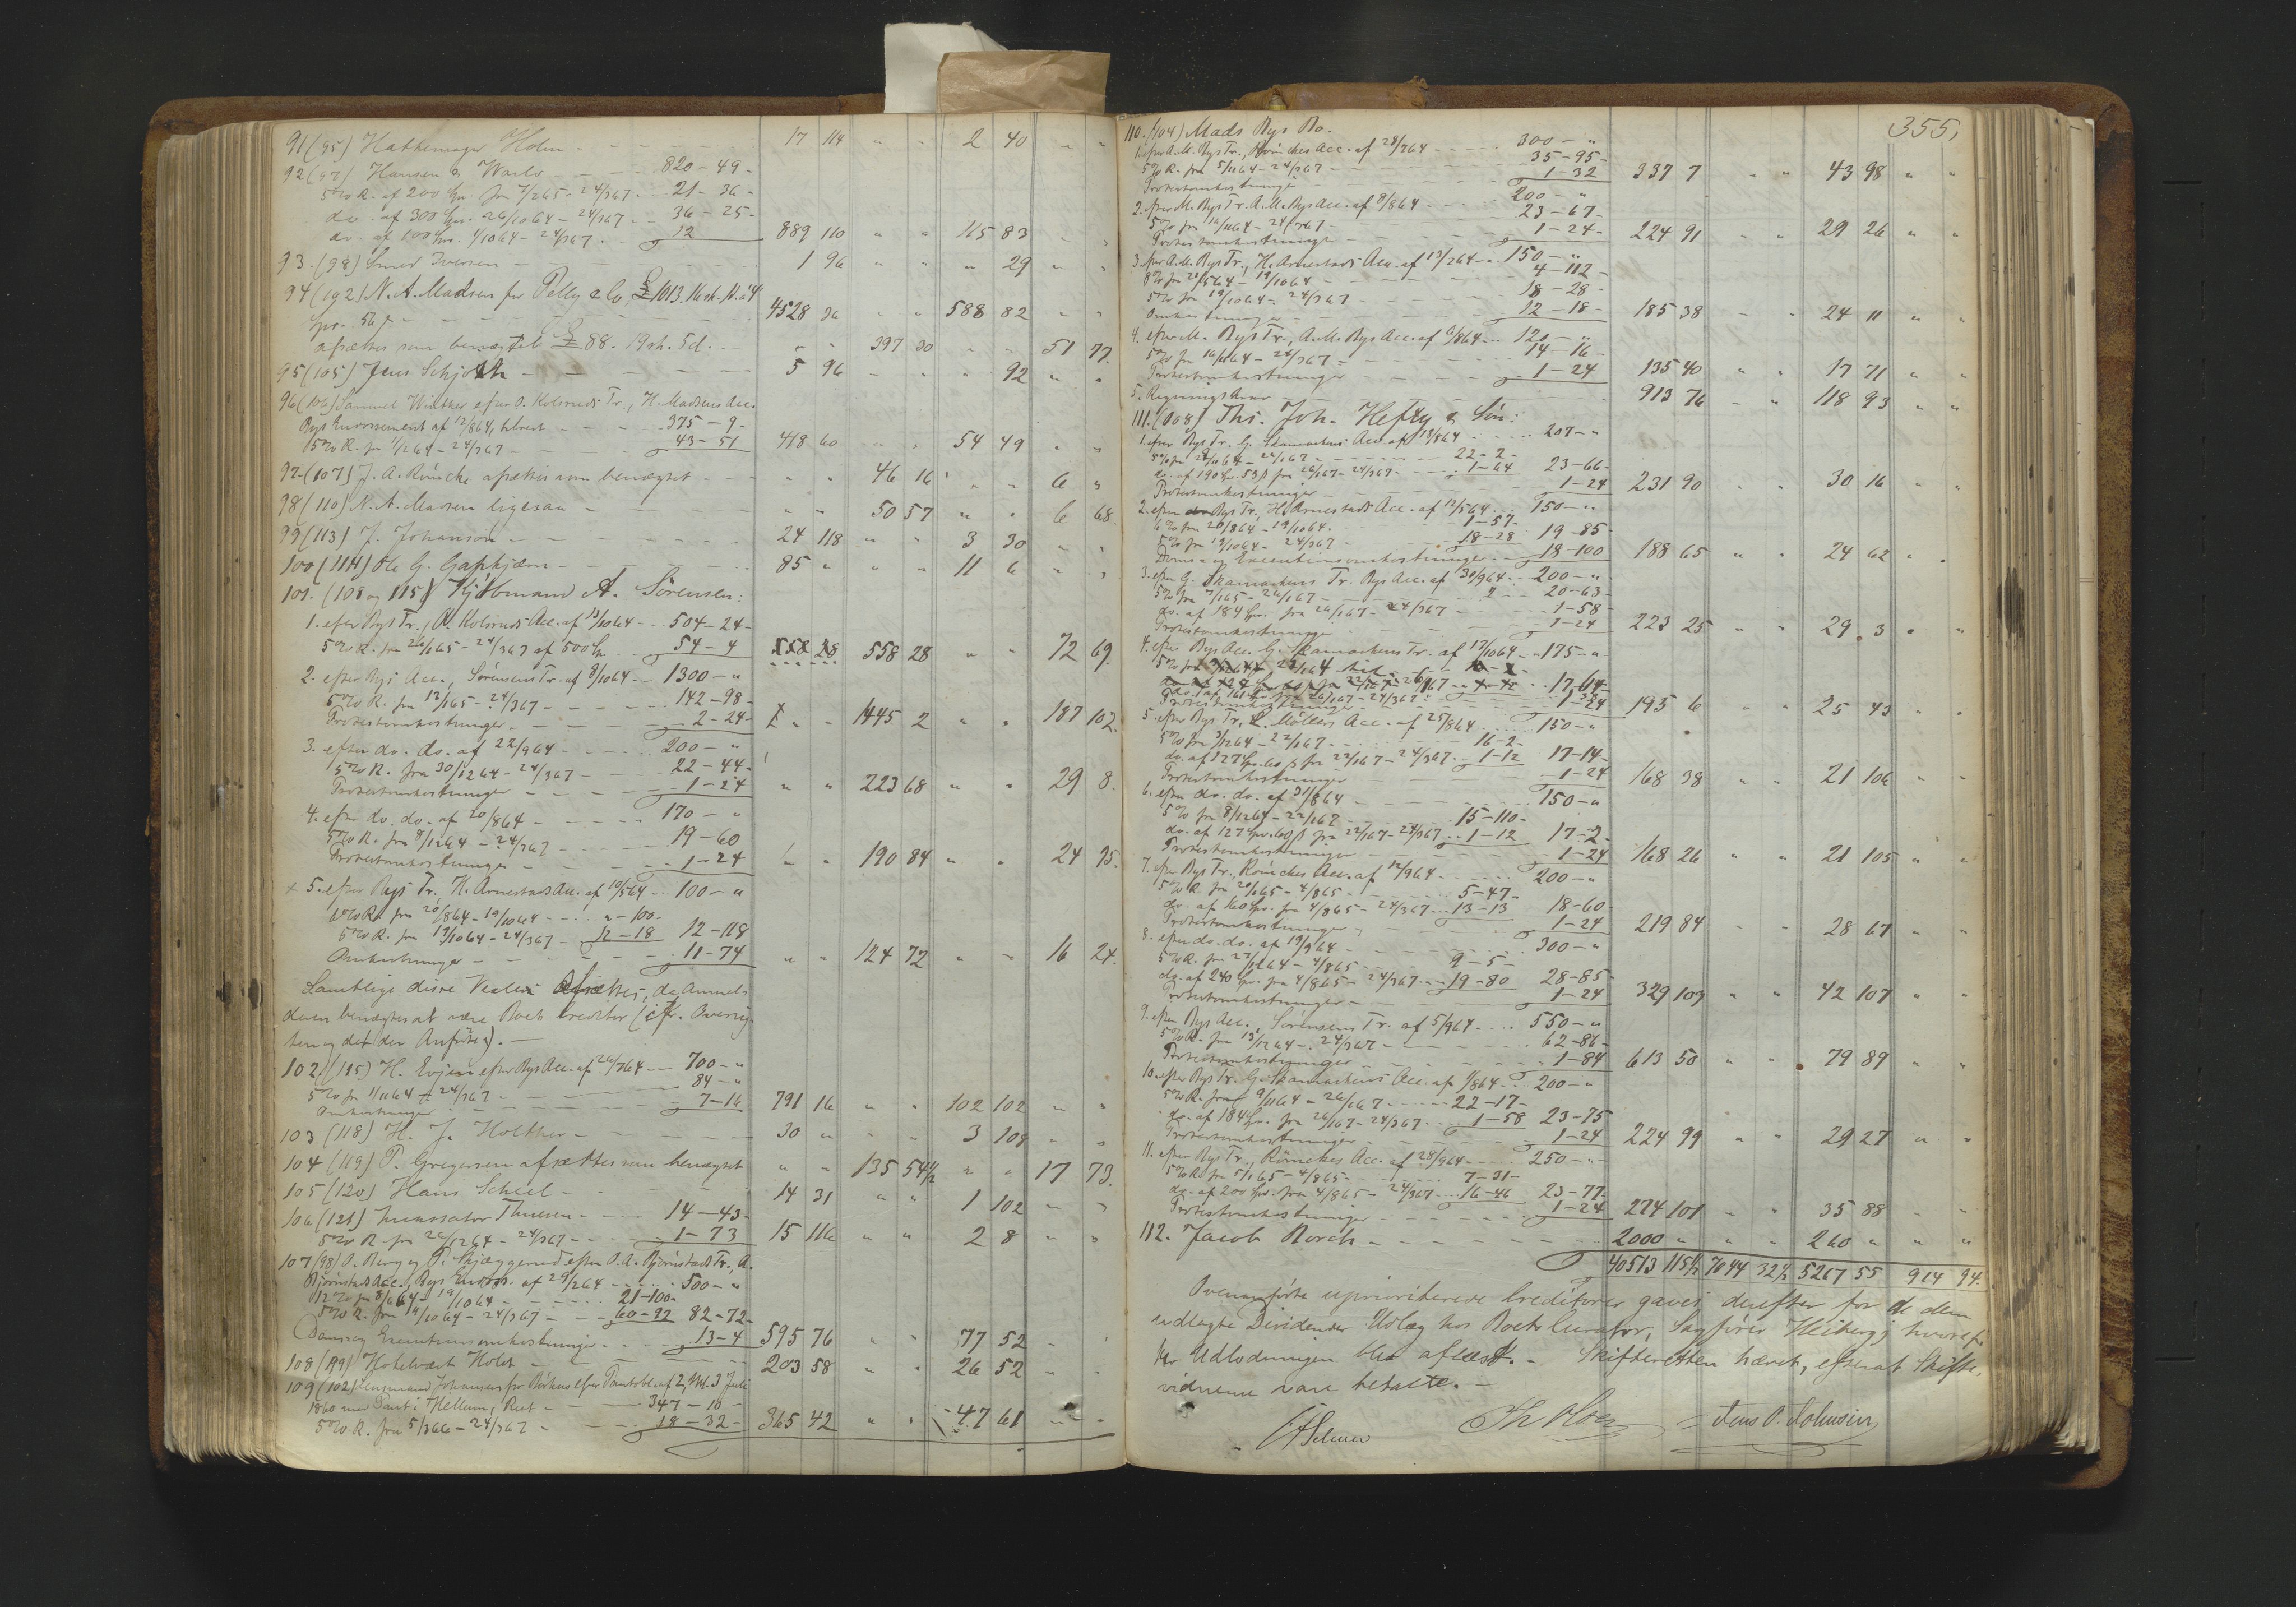 91 (95) Hattemager Holm - - - 17 114 " " 2 40 " "
92 (97) Hansen & Warlo - - - 820-49-
5% R. af 200 Spd. fra 7/265 - 24/367 - 21-36-
do. af 300 Spd. 26/1064 - 24/367 - - 36-25-
do. af 100 Spd. 1/1064 - 24/367 - - 12 889 110 " " 115 83 " "
93. (98) Smed Iversen - - - 1 96 " " " 29 " "
94 (102) N. A. Madsen for Pelly & Co, £ 1013. 16 sh. 11. à 4
Spd. 56 - - - 4528 36 " " 588 82 " "
afsættes som benægtet £ 88. 19 sh. 5 d. - " " 397 30 " " 51 77.
95 (105) Jens Schjøth - - - 5 96 - - " 92 " "
96 (106) Samuel Winther efter O. Kolsruds Tr., H. Madsens Acc.
Bys Endossement af 12/864, tilbest - - 375-9-
5% R. fra 1/1264 - 24/367 - - 43-51 418 60 " " 54 49 " "
97. (107) J. A. Röncke afsættes som benægtet - - " " 46 16 " " 6 "
98 (110) N. A. Madsen ligesaa - " " 50 57 " " 6 68.
99 (113) J. Johanson - - - 24 118 " " 3 30 " "
100 (114) Ole G. Gaphjem - - - 85 " " " 11 6 " "
101. (108 og 115) Kjøbmand A. Sörensen:
1. efter Bys Tr., O. Kolsruds Acc. af 13/1064 - - 504-24-
5% R. fra 26/165 - 24/367 af 500 Spd. - 54-4 558 28 558 28 " " 72 69.
2. efter Bys Acc., Sørensens Tr. af 8/1064 - 1300-"
5% R. fra 12/165 - 24/367 - - - 142-98-
Protestomkostninger - - - 2-24- " - 1445 2 " " 187 102.
3. efter do. do. af 22/964 - - - 200-"
5% R. fra 30/1264 - 24/367 - - 22-44-
Protestomkostninger - - - 1-24 " " 223 68 " " 29 8.
4. efter do. do. af 20/864 - - - 170-"
5% R. fra 8/1264 - 24/367 - - 19-60
Protestomkostninger - - - 1-24 " " 190 84 " " 24 95.
x 5. efter Bys Tr. H. Arnestads Acc. af 10/564 - 100-"
6% R. fra 20/864 - 19/1064 - - "-100-
5% R. fra 19/1064 - 24/367 - 12-18 12-118
Omkostninger - - - 11-74 " " 124 72 " " 16 24.
Samtlige disse Vexler afsættes, da Anmel-
deren benægtes at være Boets Creditor (cfr. Oversig-
ten og det der Anførte). -
102. (115) H. Evjen efter Bys Acc. af 26/764 - - 700-"
5% fra 1/1064 - 24/367 - - 84-"
Omkostninger - - - 7-16 791 16 " " 102 102 " "
103 (118) H. J. Holther - - - 30 " " " 3 108 " "
104 (119) P. Gregersen afsættes som benægtet " " 135 54½ " " 17 73.
105 (120) Hans Scheel - - - 14 31 " " 1 102 " "
106 (121) Incassator Thuesen - - 14-43-
5% R. fra 26/1264 - 24/367 - - 1-73 15 116 " " 2 8 " "
107 (98) O. Berg og P. Skjæggerud efter O. A. Bjørnstads Tr., A.
Bjørnstads Acc., Bys Endoss. af 29/264 - - 500-"
12% fra 8/664 - 19/1064 - - 21-100-
5% R. fra 19/1064 - 24/367 - - 60-92 82-72-
Doms og Executionsomkostninger - - 13-4 595 76 " " 77 52 " "
108 (99) Hotelvært Holst - - - 203 58 " " 26 52 " "
109 (102) Lensmand Johansen for Birkus efter Pantobl. af 2, thl. 3 Juli
1860 med Pant i Hellum, Rest - - 347-10-
5% R. fra 5/366 - 24/367 - - 18-32- 365 42 " " 47 61 " "
355,
110. (104) Mads Bys Bo.
1. efter A. M. Bys Tr., Rönckes Acc. af 28/764 - - 300-"
5% R. fra 5/1164 - 24/367 - - 35-95-
Protestomkostninger - - 1-32 337 7 " " 43 98 " "
2. efter M. Bys Tr. A. M. Bys Acc. af 8/864 - - 200-"
5% fra 16/1164 - 24/367 - - 23-67-
Protestomkostninger - - 1-24- 224 91 " " 29 26 " "
3. efter A. M. Bys Tr., H. Arnestads Acc. af 13/264 - 150-"
8% fra 20/564 - 19/1064 - - 4-112-
5% fra 19/1064 - 24/367 - - 18-28-
Omkostninger - - 12-18- 185 38 " " 24 11 " "
4. efter M. Bys Tr., A. M. Bys Acc. af 6/864 - 120-"
5% fra 16/1164 - 24/367 - - 14-16-
Protestomkostninger - - 1-24 135 40 " " 17 71 " "
5. Regningskrav - - - 913 76 " " 118 93 " "
111. (108) Ths. Joh. Heftye & Søn:
1. efter Bys Tr. G. Skamarkens Acc. af 13/864 - - 207-"
5% fra 28/1164 - 26/167 - - 22-2-
do. af 190 Spd. 53 β fra 26/167 - 24/367 - 1-64 23-66-
Protestomkostninger - - 1-24 231 90 " " 30 16 " "
2. efter Bys Tr., H. Arnestads Acc. af 12/564 - 150-"
6% fra 20/864 - 19/1064 - 1-57-
5% fra 19/1064 - 24/367 - 18-28 19-85-
Doms- og Executionsomkostninger - 18-100 188 65 " " 24 62 "
3. efter G. Skamarkens Tr. Bys Acc. af 30/964 - 200-"
5% fra 7/165 - 26/167 - - 20-63-
do. af 184 Spd. fra 26/167 - 24/367 - - 1-58-
Protestomkostninger - - 1-24 223 25 " " 29 3 " "
4. efter Bys Acc. G. Skamarkens Tr. af 17/1064 - 175-"
17,64-
do. af 161 Spd. fra 26/167 - 24/367
Protestomkostninger - 1-24 193 6 " " 25 43 " "
5. efter Bys Tr., L. Møllers Acc. af 25/864 - - 150-"
5% fra 3/1264 - 22/167 - - 16-2-
do. af 127 Spd. 60 β fra 22/167 - 24/367 - 1-12 17-14-
Protestomkostninger - - 1-24 168 38 " " 21 106 " "
6. efter do. do. af 31/864 - - - 150-"
5% fra 8/1264 - 22/167 - - 15-110-
do. af 127 Spd. 60 β fra 22/167 - 24/367 - 1-12 17-2-
Protestomkostninger - - 1-24 168 26 " " 21 105 " "
7. efter Bys Tr., Rönckes Acc. af 12/964 - - 200-"
5% R. fra 20/165 - 4/865 - - 5-47-
do. af 160 Spd. fra 4/865 - 24/367 - 13-13 18-60-
Protestomkostninger - - 1-24 219 84 " " 28 67 " "
8. efter do. do. af 19/964 - - - 300-"
5% R. fra 27/1264 - 4/865 - - 9-5-
do. af 240 Spd. fra 4/865 - 24/367 - 19-80 28-85-
Protestomkostninger - - 1-24 329 109 " " 42 107 " "
9. efter Bys Acc., Sørensens Tr. af 5/964 - - 550-"
5% R. fra 13/1264 - 24/367 - - 62-86-
Protestomkostninger - - 1-84 613 50 " " 79 89 " "
10. efter Bys Tr. G. Skamarkens Acc. af 1/864 - 200-"
5% R. fra 9/1164 - 26/167 - - 22-17-
do. af 184 Spd. fra 26/167 - 24/367 - 1-58 23-75
Protestomkostninger - - 1-24 224 99 " " 29 27 " "
11. efter Bys Tr., Rönckes Acc. af 28/964 - - 250-"
5% R. fra 5/165 - 4/865 - - 7-31-
do. af 200 Spd. fra 4/865 - 24/367 - 16-46 23-77-
Protestomkostninger - - 1-24 274 101 " " 35 88 " "
112. Jacob Borch - - - 2000 " " " 260 " " "
40513 115½ 7044 32½ 5267 55 914 94.
Ovenanførte uprioriterede Creditorer gaves derefter for de dem
udlagte Dividender Udlæg hos Boets Curator, Sagfører Heiberg; hvorefter
Udlodningen blev aflæst. - Skifteretten hævet, efterat Skifte-
vidnerne vare betalte. -
Th Hoen Jens O. Johnsen